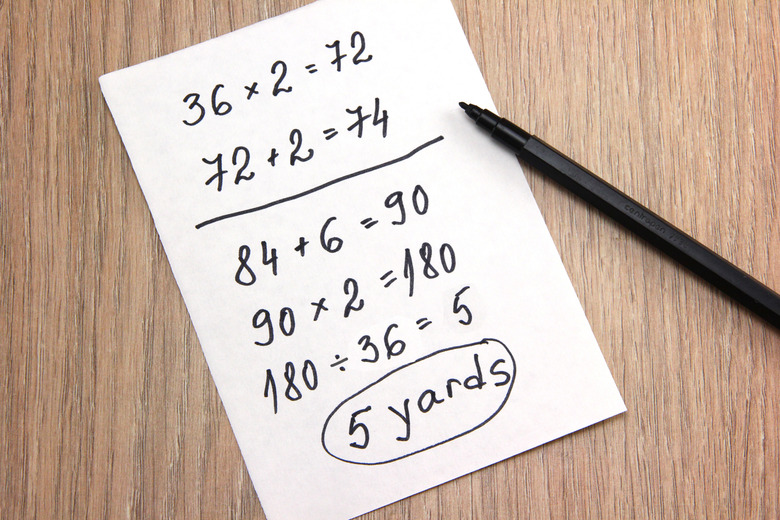 36 × 2 = 72
72 + 2 = 74
84 + 6 = 90
90 × 2 = 180
180 ÷ 36 = 5
5 yards